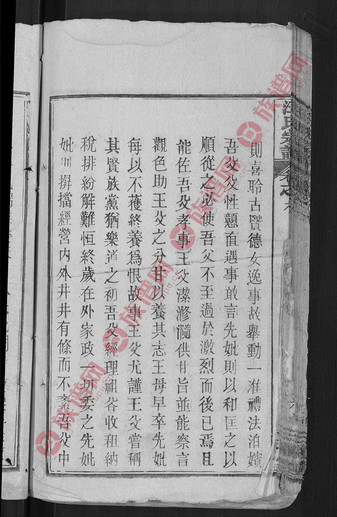 則喜聆古賢德女逸事故舉動一准禮法洎嬪
吾父父性戇直遇事敢言先妣則以和匡之以
順從之必使吾父不至過於激烈而後已焉且
能佐吾父孝事王父潔滫髓供甘旨並能察言
觀色助王父之分甘以養其志王母早卒先妣
每以不獲終養為恨故事王父尤謹王父嘗稱
其賢族黨猶樂道之初吾父經理祠谷收租納
稅排紛解難恒終歲在外家政一切委之先妣
妣則拼擋經營內外井井有條而不紊吾父中
氏宗譜
族譜网